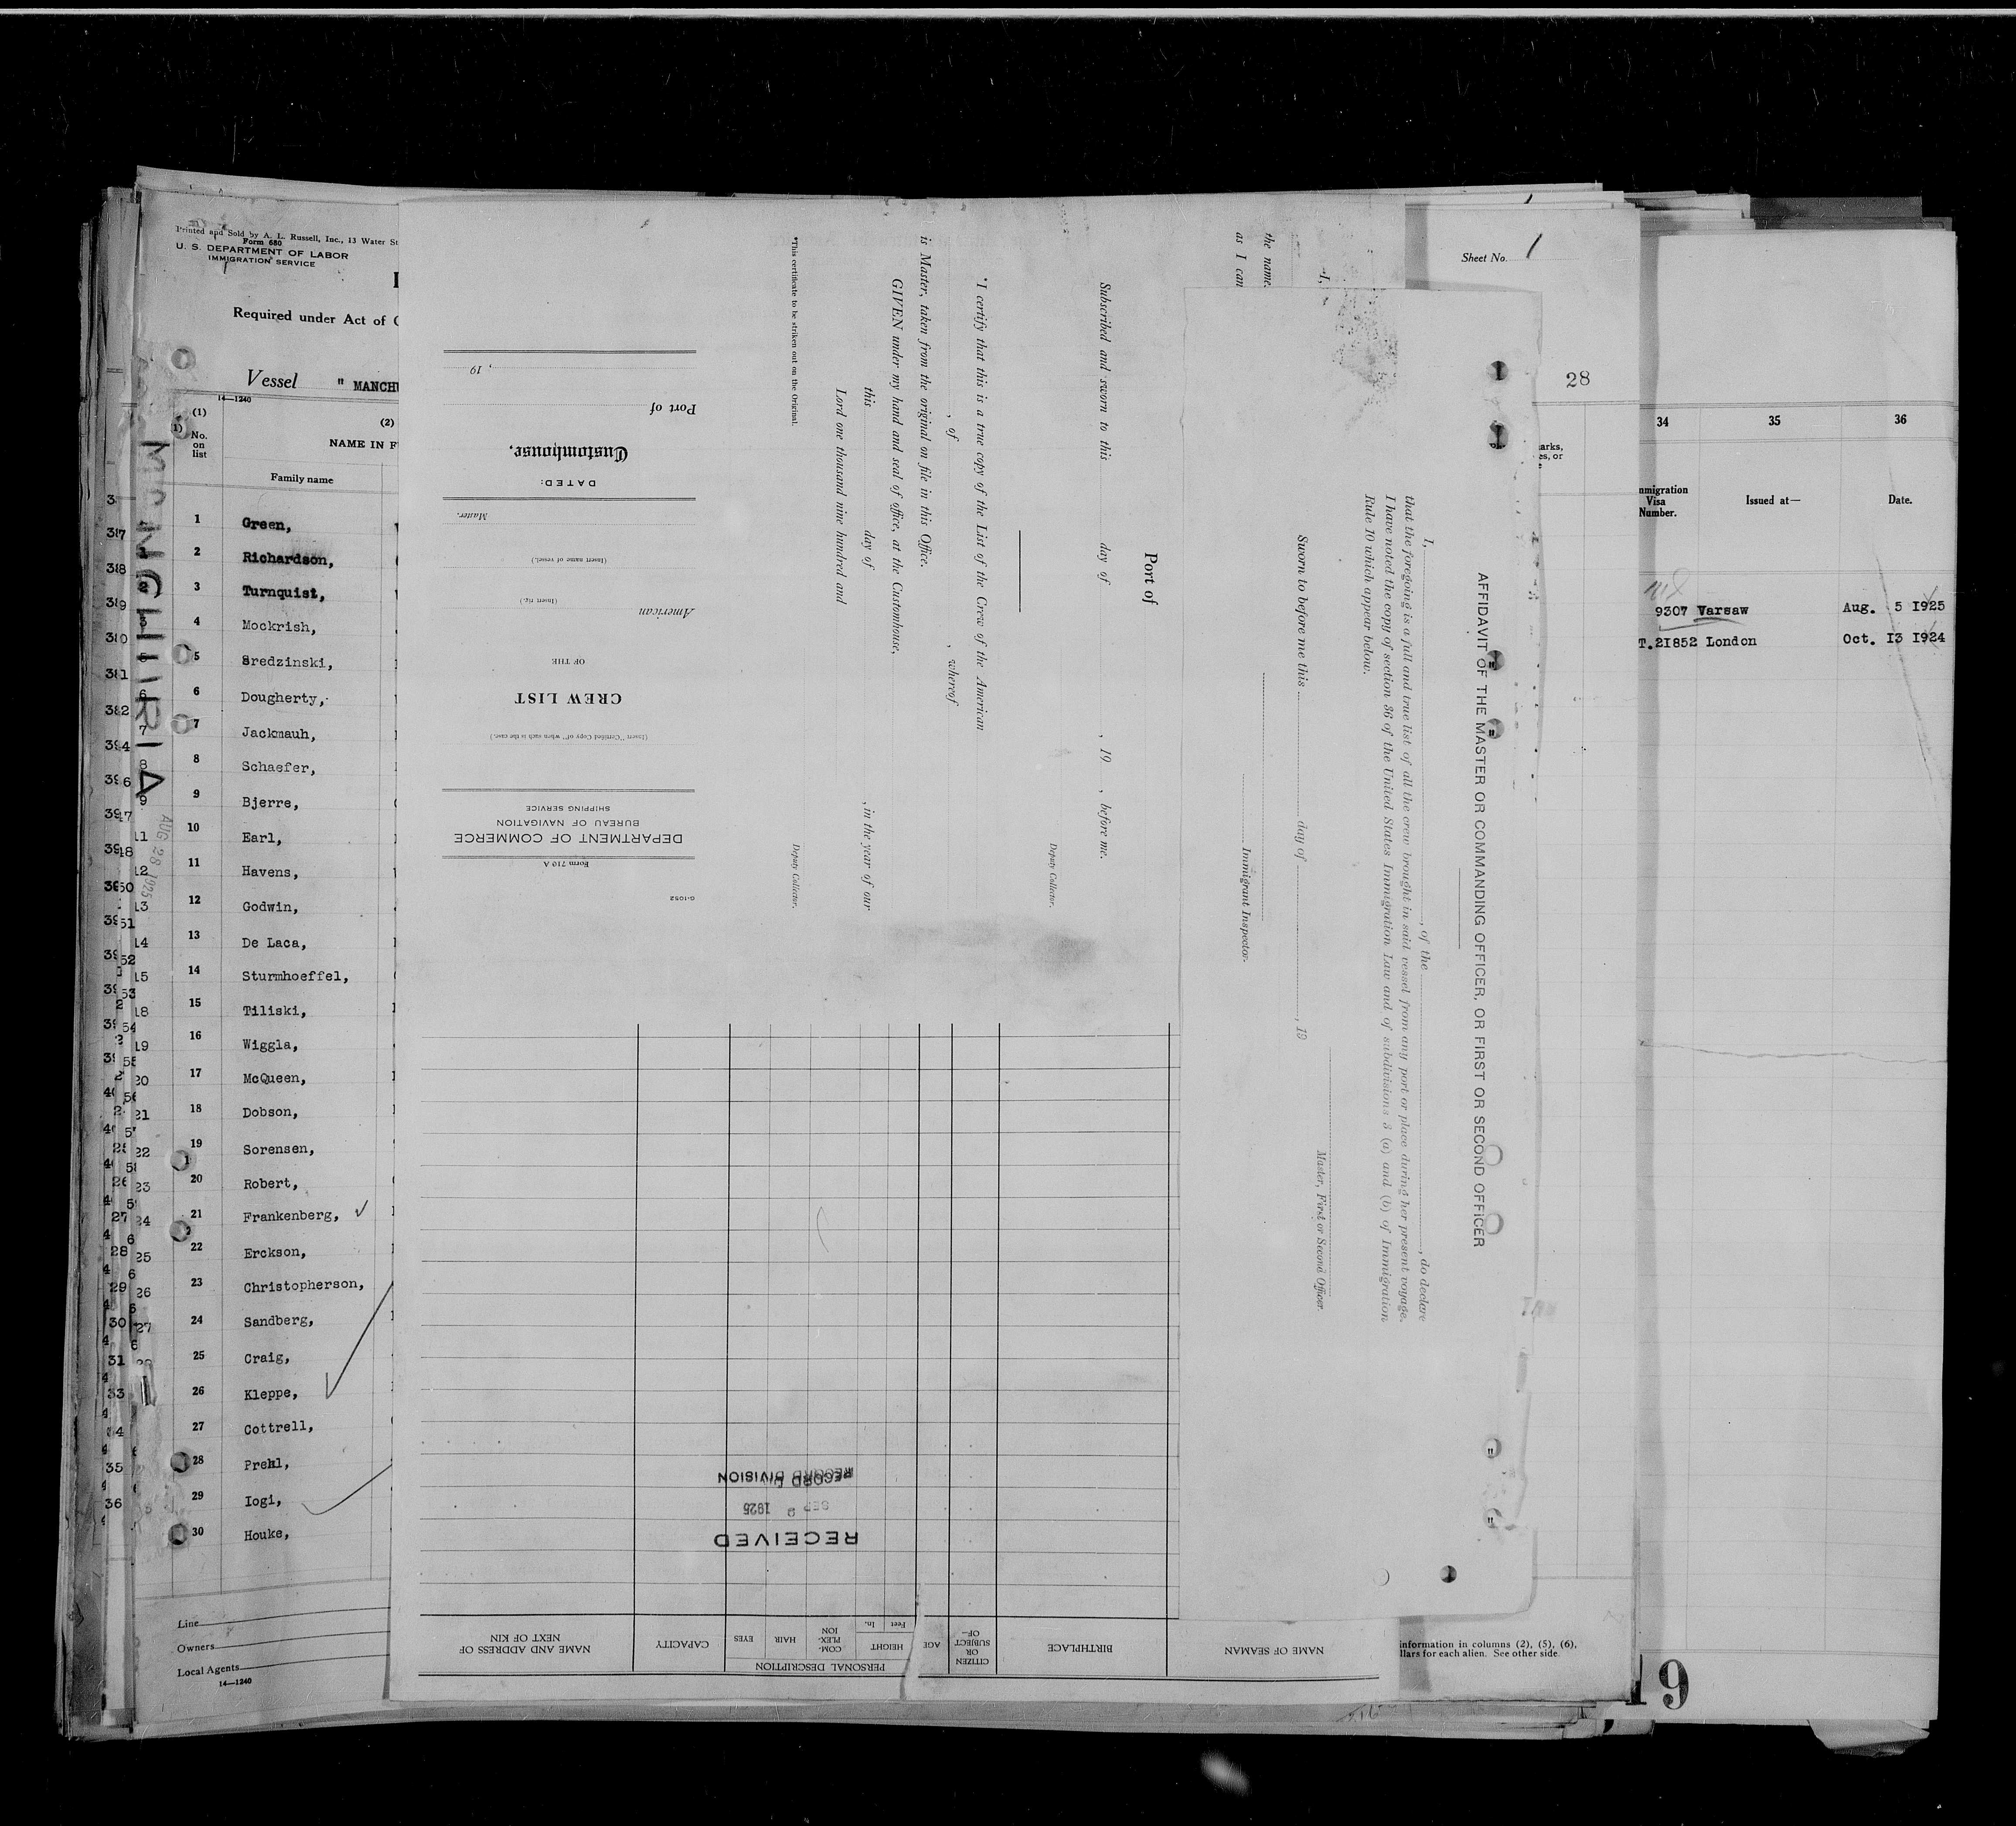 Printed and Sold by A. L. Russell, Inc., 13 Water St
Form 680
U. S. DEPARTMENT OF LABOR
IMMIGRATION SERVICE
Required under Act of
Vessel " MANCHU
14—1240
(1)
(2)
No. on list
NAME IN F
Family name
1 Green,
2 Richardson,
3 Turnquist,
4 Mockrish,
5 Sredzinski,
6 Dougherty,
7 Jackmauh,
8 Schaefer,
9 Bjerre,
10 Earl,
11 Havens,
12 Godwin,
13 De Laca,
14 Sturmhoeffel,
15 Tiliski,
16 Wiggla,
17 McQueen,
18 Dobson,
19 Sorensen,
20 Robert,
21 Frankenberg, ✓
22 Erckson,
23 Christopherson,
24 Sandberg,
25 Craig,
26 Kleppe,
27 Cottrell,
28 Prehl,
29 Iogi,
30 Houke,
Line
Owners
Local Agents
14—1240
MANCHURIA
AUG 28 1925
G-1052
Form 710 A
DEPARTMENT OF COMMERCE
BUREAU OF NAVIGATION
SHIPPING SERVICE
(Insert "Certified Copy of" when such is the case.)
CREW LIST
OF THE
American
(Insert rig.)
(Insert name of vessel.)
Master.
DATED:
Customhouse,
Port of
, 19
the name
as I can
I,
Port of
Subscribed and sworn to this day of , 19 , before me.
Deputy Collector.
*I certify that this is a true copy of the List of the Crew of the American
, of , whereof
is Master, taken from the original on file in this Office.
GIVEN under my hand and seal of office, at the Customhouse,
this day of , in the year of our
Lord one thousand nine hundred and
Deputy Collector.
*This certificate to be striken out on the Original.
NAME OF SEAMAN
BIRTHPLACE
CITIZEN OR SUBJECT OF—
AGE
PERSONAL DESCRIPTION
HEIGHT
Feet
In.
COM-PLEX-ION
HAIR
EYES
CAPACITY
NAME AND ADDRESS OF NEXT OF KIN
RECEIVED
SEP 2 1925
RECORD DIVISION
AFFIDAVIT OF THE MASTER OR COMMANDING OFFICER, OR FIRST OR SECOND OFFICER
I, , of the , do declare
that the foregoing is a full and true list of all the crew brought in said vessel from any port or place during her present voyage.
I have noted the copy of section 36 of the United States Immigration Law and of subdivisions 3 (a) and (b) of Immigration
Rule 10 which appear below.
Master, First or Second Officer.
Sworn to before me this day of , 19
Immigrant Inspector.
Sheet No. 1
28
arks,
es, or
information in columns (2), (5), (6),
llars for each alien. See other side.
34
35
36
mmigration Visa Number.
Issued at—
Date.
9307 Varsaw Aug. 5 1925
T.21852 London Oct. 13 1924
19